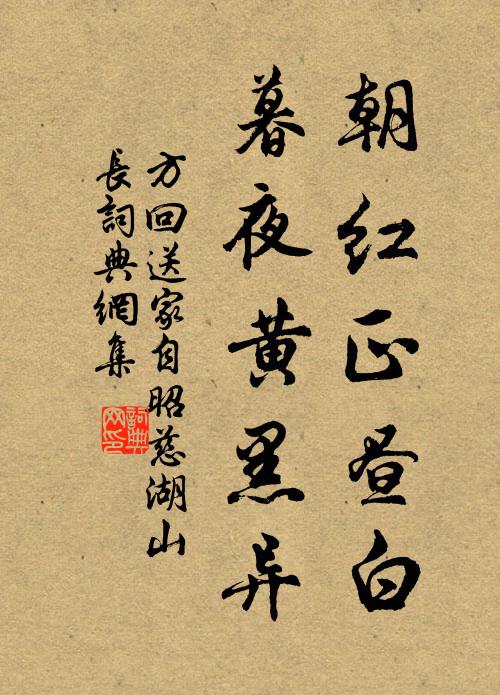 朝红正昼白
暮夜黄黑异
方回送家自昭慈湖山
長詞典網集
詞典
网印